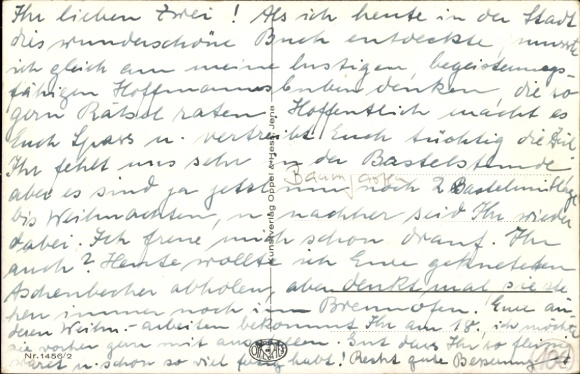 Ihr lieben Zwei! Als ich heute in der Stadt
dies wunderschöne Buch entdeckte, musste
ich gleich an meine lustigen, begeisterungs-
fähigen Hoffmannsbuben denken, die so
gern Rätsel raten. Hoffentlich macht es
Euch Spass u. vertreibt Euch tüchtig die Zeit
Ihr fehlt uns sehr in der Bastelstunde
Baumgarten
aber es sind ja jetzt nur noch 2 Bastelmittage
bis Weihnachten, u. nachher seid Ihr wieder
dabei. Ich freue mich schon drauf. Ihr
auch? Heute wollte ich Eure gekneteten
Aschenbecher abholen, aber denkt mal sie ste
hen immer noch im Brennofen! Eure an-
deren Weihn.-arbeiten bekommt Ihr am 18., ich möchte
sie vorher gern mit ausstellen. Gut dass Ihr so fleissig
waret u. schon so viel fertig habt! Recht gute Besserung
Kunstverlag Oppel & Hess, Jena
Nr. 1456/2